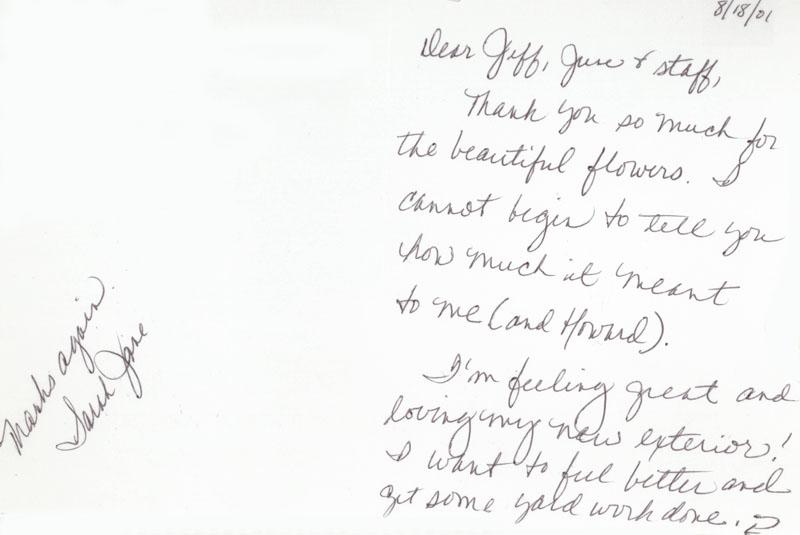 8/18/01
Dear Jeff, June & staff,
Thank you so much for
the beautiful flowers. I
cannot begin to tell you
how much it meant
to me (and Howard).
I'm feeling great and
loving my new exterior!
I want to feel better and
get some yard work done.
Thanks again.
Sarah Jane